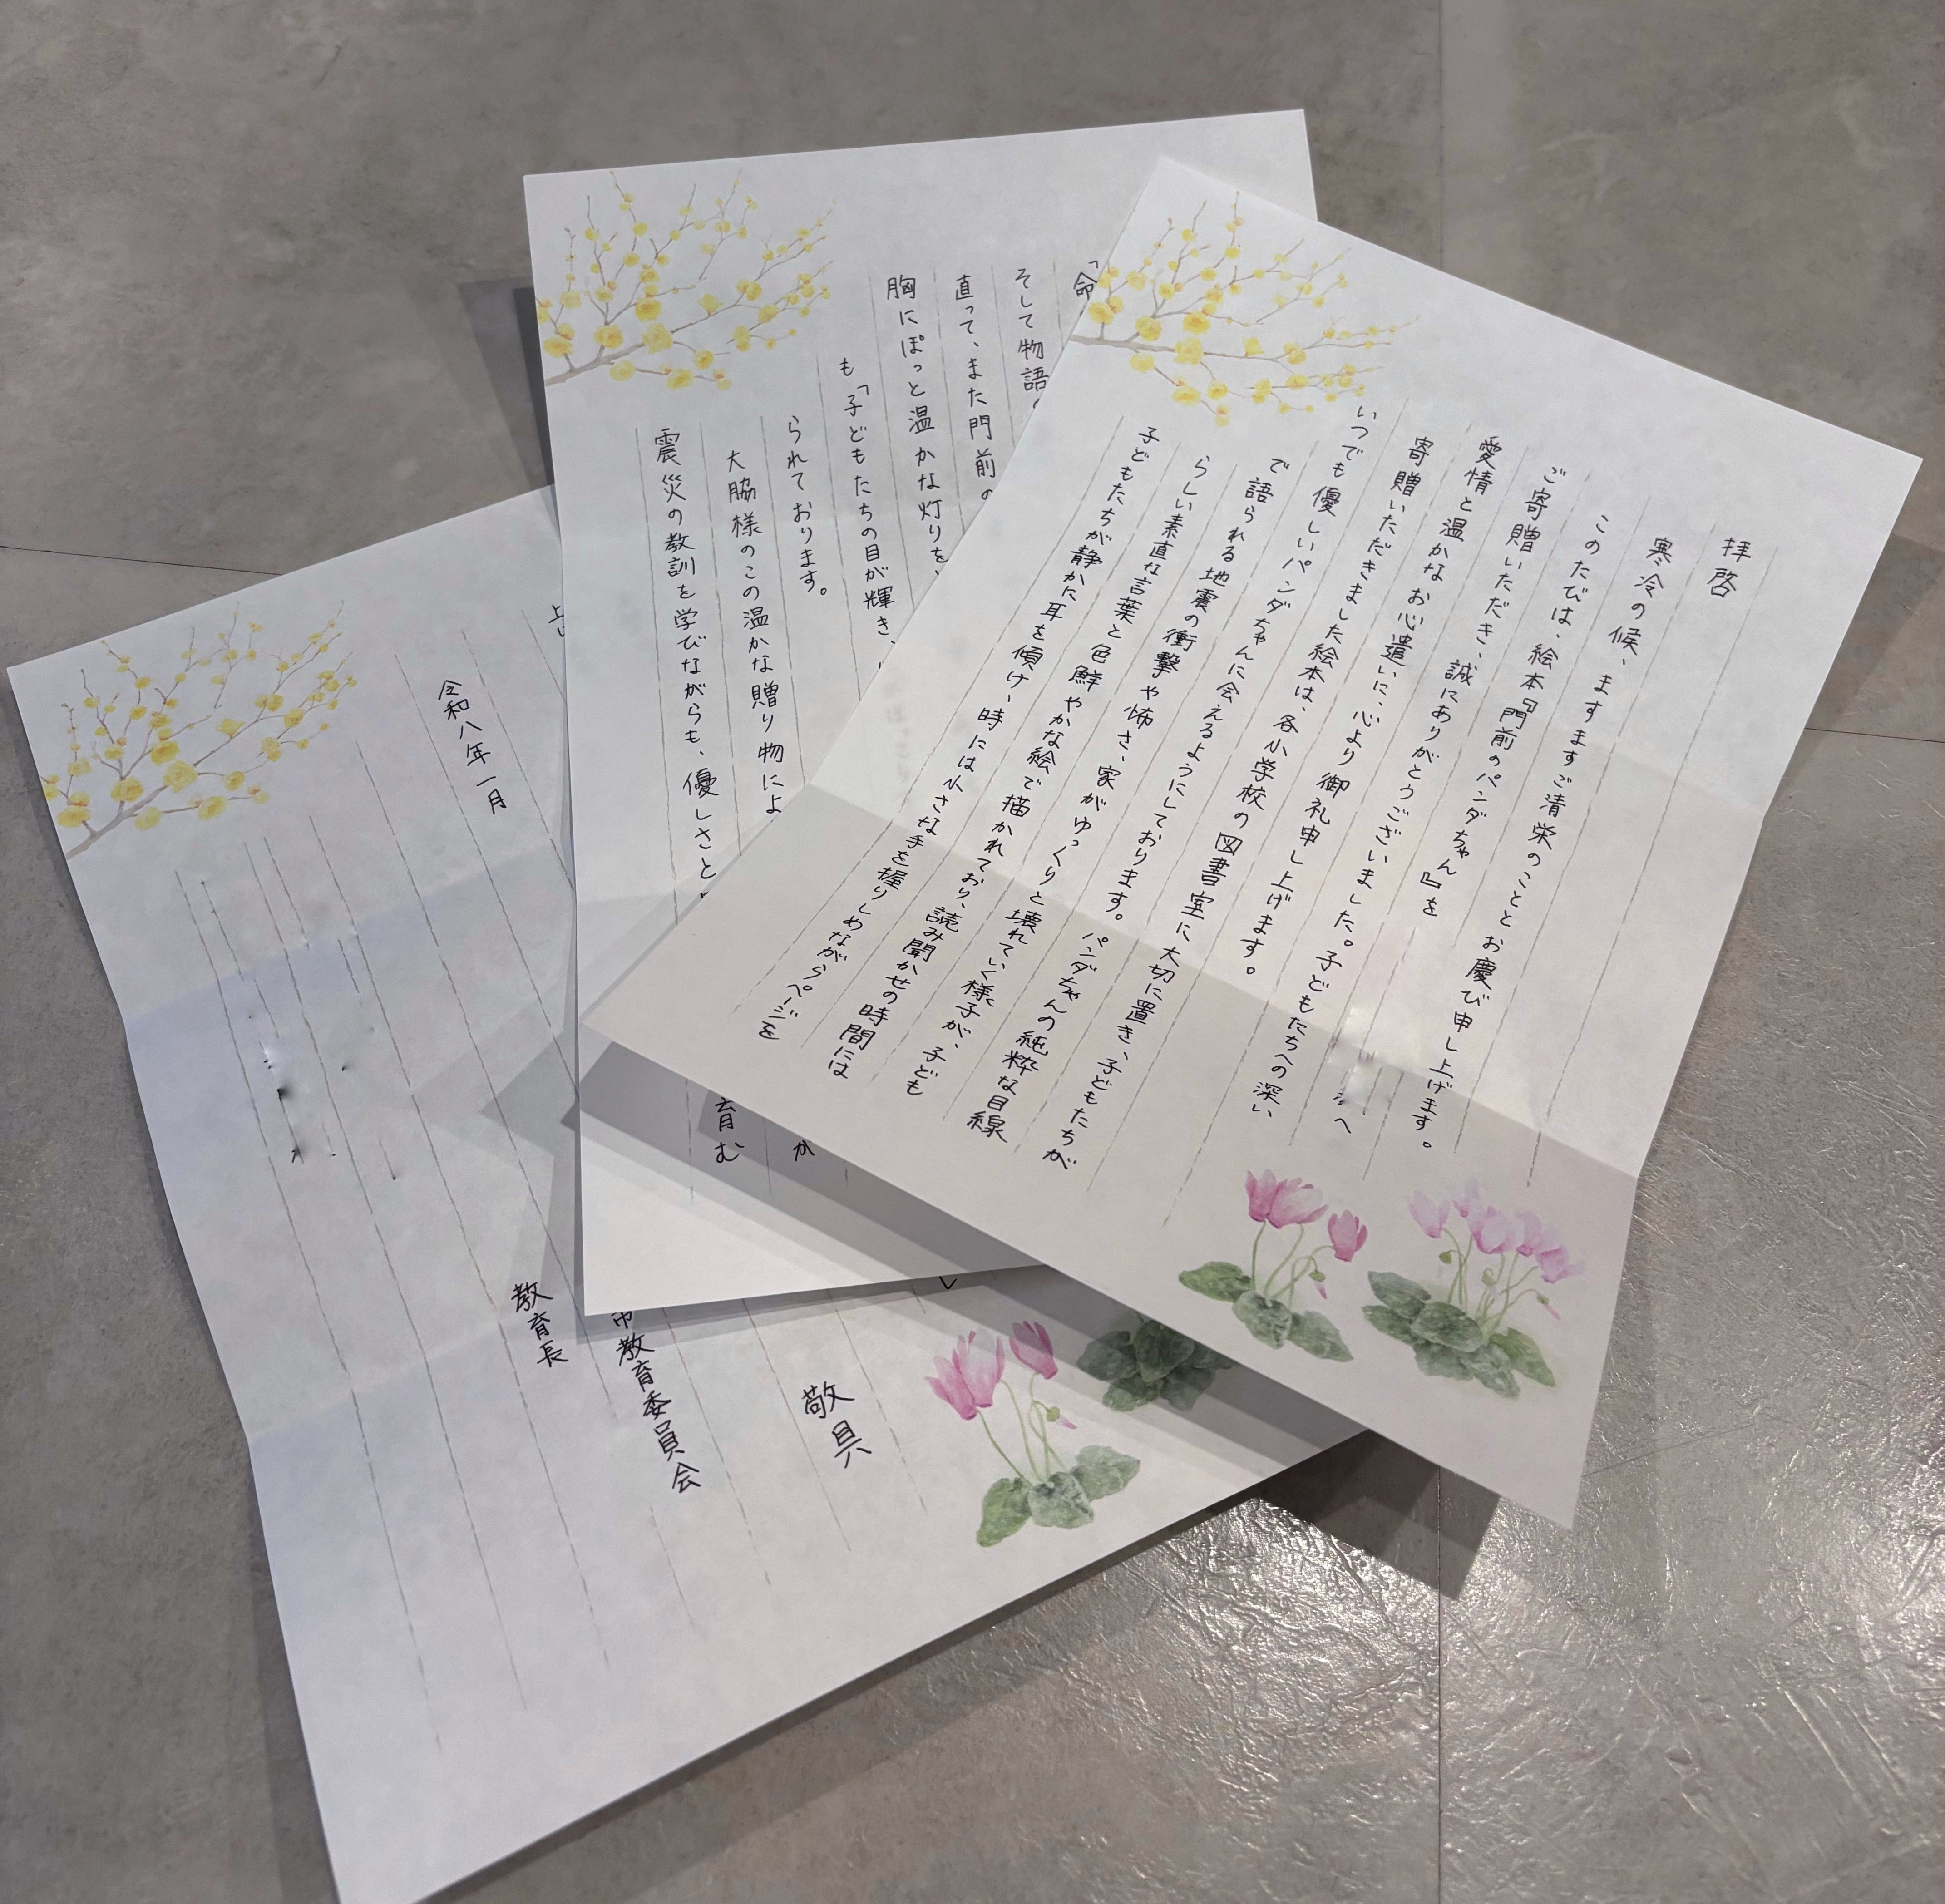 拝啓
寒冷の候、ますますご清栄のこととお慶び申し上げます。
このたびは、絵本『門前のパンダちゃん』を
ご寄贈いただき、誠にありがとうございました。子どもたちへの深い
愛情と温かなお心遣いに、心より御礼申し上げます。
寄贈いただきました絵本は、各小学校の図書室に大切に置き、子どもたちが
いつでも優しいパンダちゃんに会えるようにしております。パンダちゃんの純粋な目線
で語られる地震の衝撃や怖さ、家がゆっくりと壊れていく様子が、子ども
らしい素直な言葉と色鮮やかな絵で描かれており、読み聞かせの時間には
子どもたちが静かに耳を傾け、時には小さな手を握りしめながらページを
「命
そして物語
直って、また門前の
胸にぽっと温かな灯りを、
も「子どもたちの目が輝き、
られております。
大脇様のこの温かな贈り物によ
か
震災の教訓を学びながらも、優しさと
育む
敬具
令和八年一月
市教育委員会
教育長